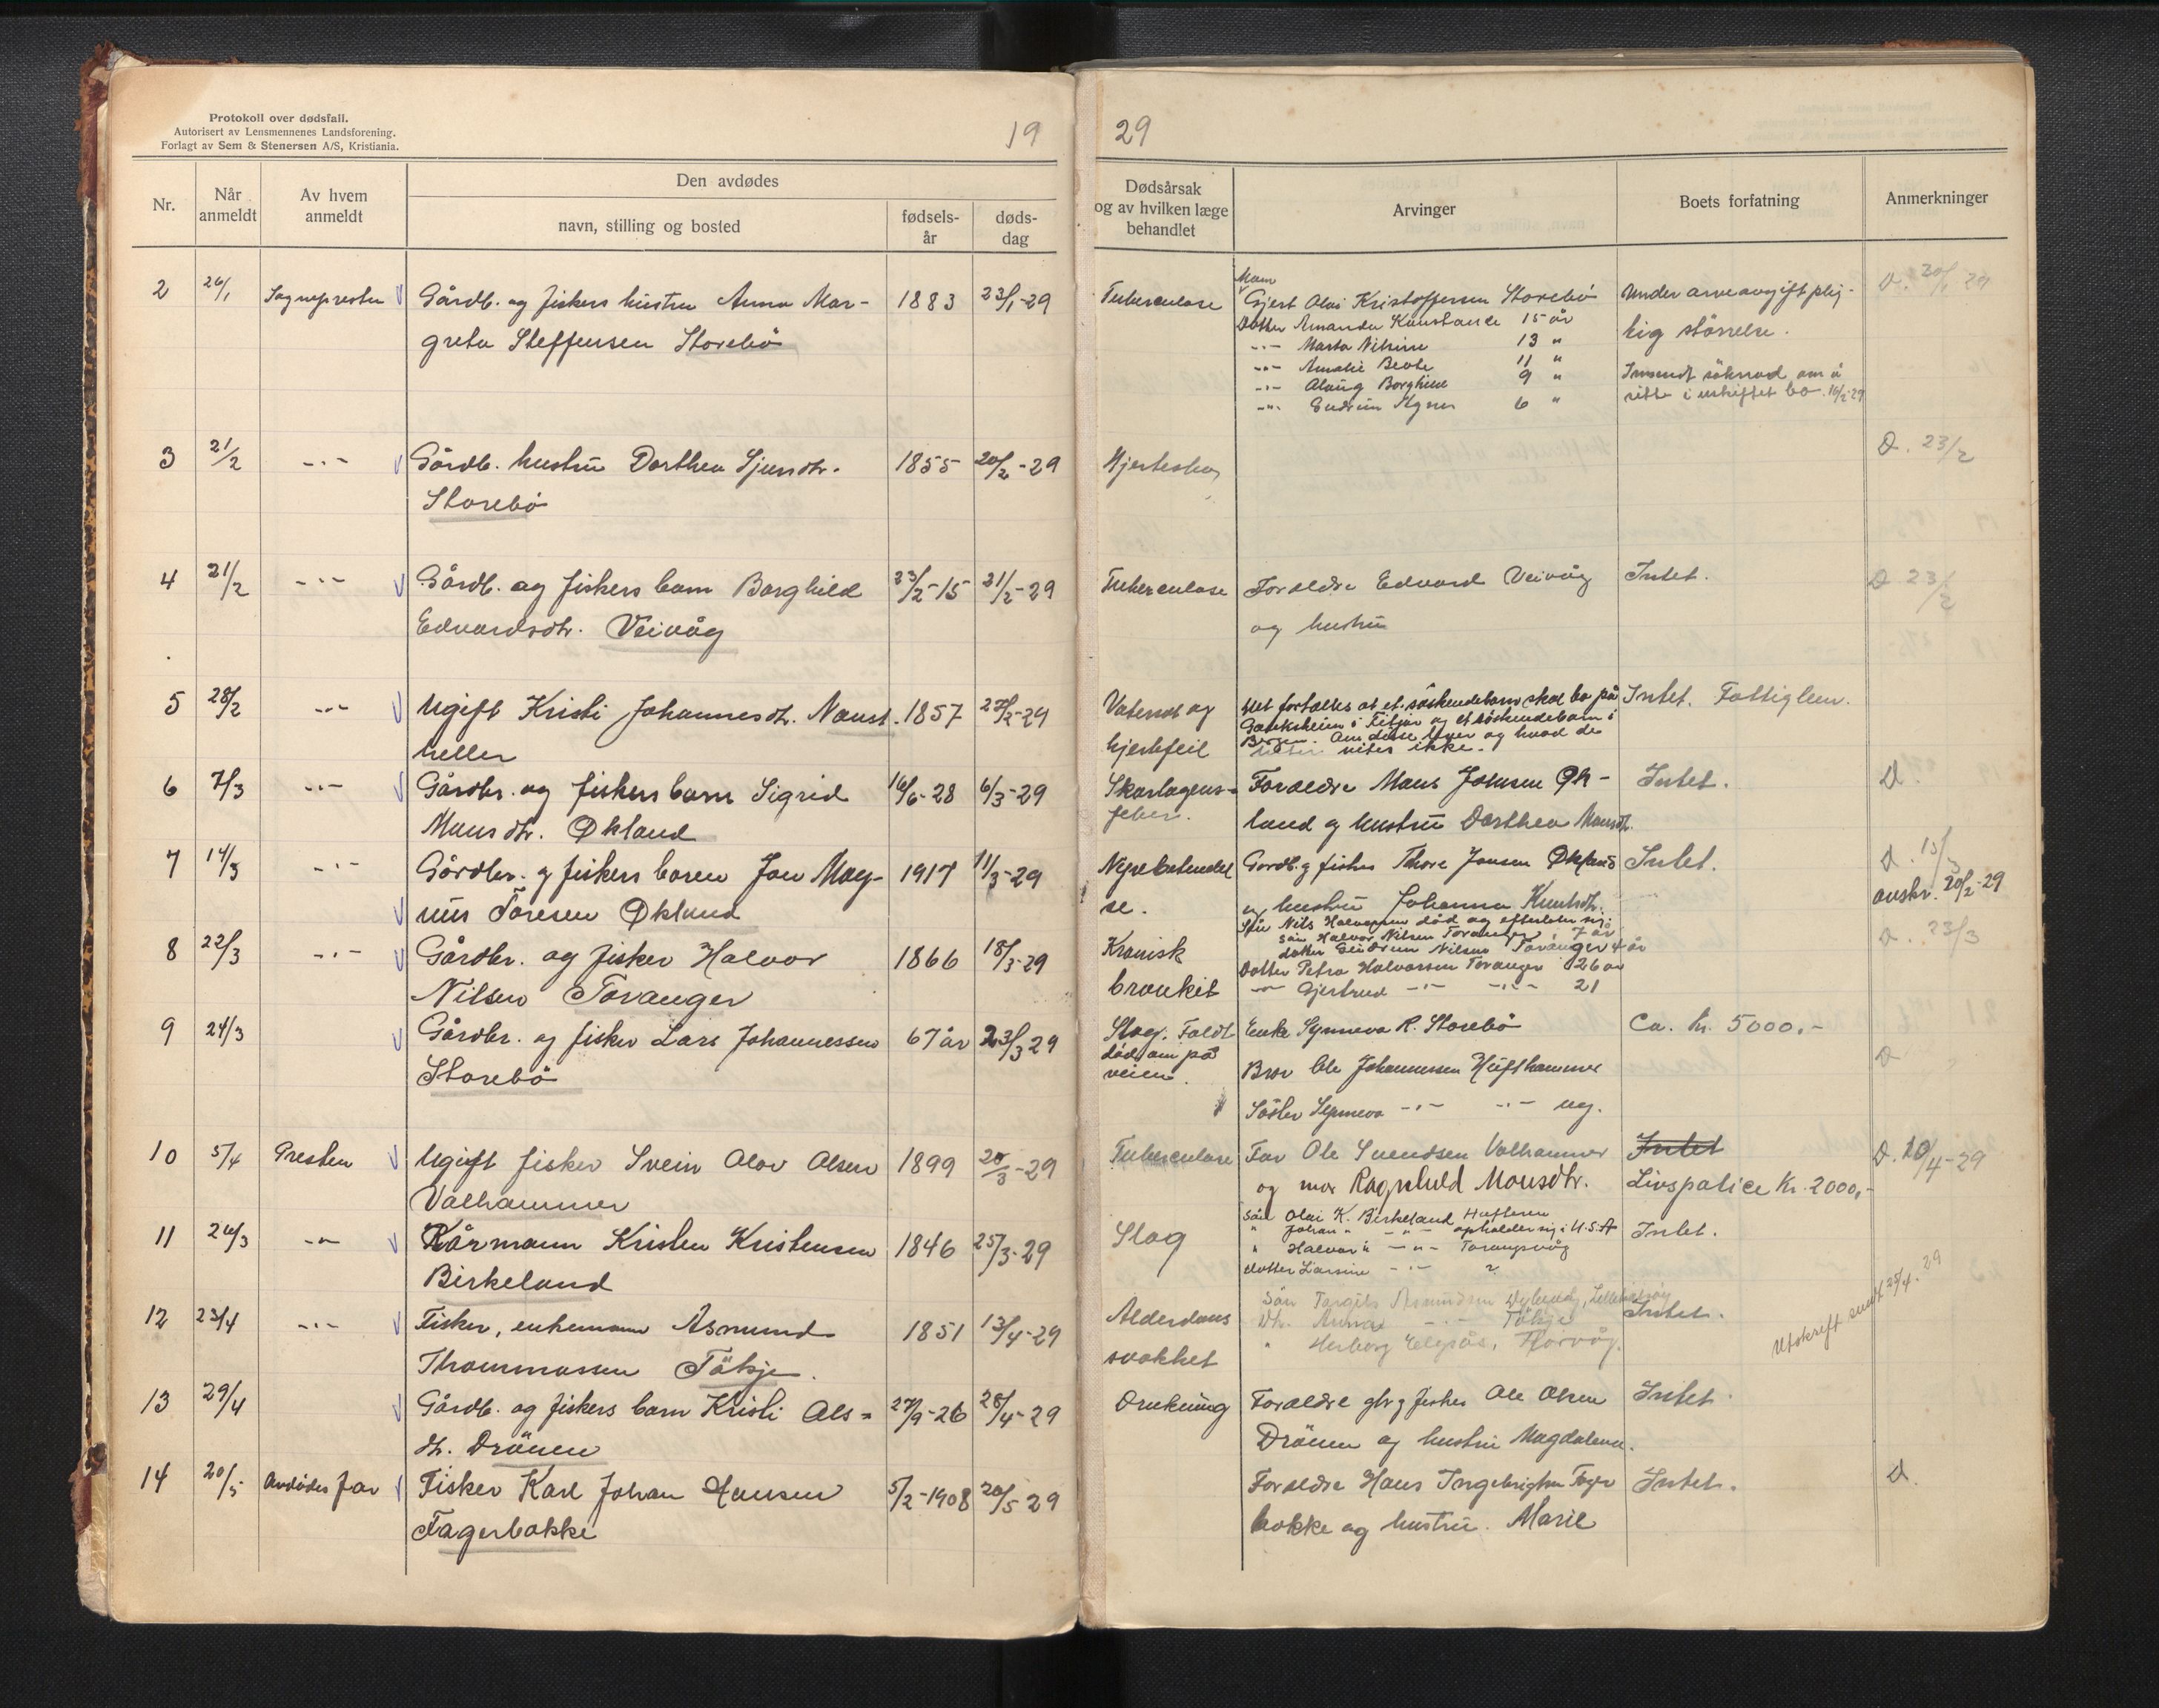 Protokoll over dødsfall.
Autorisert av Lensmennenes Landsforening.
Forlagt av Sem & Stenersen A/S, Kristiania.
19 29
Nr. Når anmeldt Av hvem anmeldt Den avdødes navn, stilling og bosted fødselsår dødsdag Dødsårsak og av hvilken læge behandlet Arvinger Boets forfatning Anmerkninger
2 26/1 Sognepresten Gårdb. og fiskers hustru Anna Mar- 1883 23/1-29 Tuberculose
greta Steffensen Storebö
Mann
Gjert Olai Kristoffersen Storebö
Datter Amanda Konstance 15 år
-"- Marta Nilsine 13 "
-"- Amalie Beate 11 "
-"- Olaug Borghild 9 "
-"- Gudrun Agnes 6 "
Under arveavgiftplig-
tig större­lse.
Innsendt söknad om å
sitte i uskiftet bo. 16/2-29
3 21/2 -"- Gårdb. hustru Dorthea Sjursdtr. 1855 20/2-29 Hjerteslag D. 23/2
Storebö
4 21/2 -"- Gårdb. og fiskers barn Borghild 23/2-15 21/2-29 Tuberculose Foreldre Edvard Veivåg Intet. D 23/2
Edvardsdtr. Veivåg og hustru
5 28/2 -"- Ugift Kristi Johannesdtr. Naust- 1857 Vatersot og Intet. Fattiglem.
heller hjertefeil
Det fortelles at et söskendebarn skal bo på
i Fitjar og et söskendebarn i
Bergen. Om disse lever og hvad de
heter vites ikke.
6 7/3 -"- Gårdbr. og fiskers barn Sigrid 16/6-28 6/3-29 Skarlagens- Foreldre Mons Johnsen Øk- Intet. D.
Monsdtr. Økland feber. land og hustru Dorthea Monsdtr.
7 14/3 -"- Gårdbr. og fiskers barn Jon Mag- 1917 11/3-29 Nyrebetendel- Gardb. og fisker Thore Jonsen Økland Intet. D. 15/3
nus Toresen Økland se. og hustru Johanna Knutsdtr. anskr. 20/2-29
8 22/3 -"- Gårdbr. og fisker Halvor 1866 18/3-29 Kronisk D. 23/3
Nilsen Toranger bronkit
Sön Nils Halvorsen död og efterlater sig:
sön Halvor Nilsen Toranger 7 år
datter Gudrun Nilsen Toranger 4 år
Datter Petra Halvorsen Toranger 26 år
-"- Gjertrud -"- -"- 21
9 24/3 Gårdbr. og fisker Lars Johannessen 67 år 23/3 29 Slag. Faldt Enke Synneva R. Storebö Ca. kr. 5000.-
Storebö död om på Bror Ole Johannessen Hufthammer D
veien. Söster Synneva -"- -"- ug.
10 5/4 Presten Ugift fisker Svein Olov Olsen 1899 20/3-29 Tuberculose Far Ole Svendsen Valhammer Intet D. 10/4-29
Valhammer og mor Ragnhild Monsdtr. Livspolice kr. 2000,-
11 26/3 -"- Kårmann Kristen Kristensen 1846 25/3-29 Slag Intet.
Birkeland
Sön Olai K. Birkeland Hufteren
" Johan " -"- opholder sig i U.S.A
" Halvor " -"- Torangsvåg
datter Larsine -"- ?
12 23/4 -"- Fisker, enkemann Asmund 1851 13/4-29 Alderdoms Intet. Utskrift sendt 25/4. 29
Thommasen Tökje. svakhet
Sön Torgils Asmundsen
Dtr. Anna -"- Tökje
" Herborg
13 29/4 Gårdb. og fiskers barn Kristi Ols- 27/9-26 28/4-29 Drukning Foreldre gbr og fisker Ole Olsen Intet.
dtr. Drönen Drönen og hustru Magdalena.
14 20/5 Avdödes far Fisker Karl Johan Hansen 5/2-1908 20/5 29 Foreldre Hans Ingebrigtsen Fager Intet. D.
Fagerbakke bakke og hustru. Marie